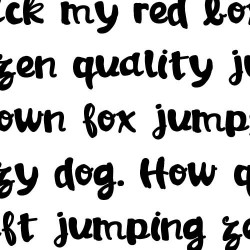 ck my red box
zen quality ju
own fox jumps
zy dog. How q
ft jumping ze